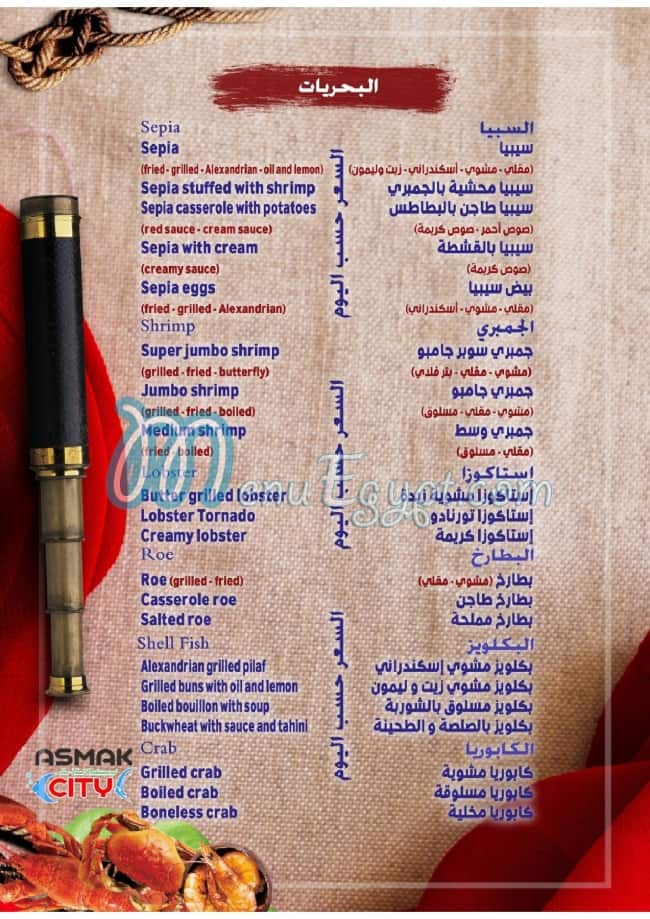 البحريات
Sepia السبيا
Sepia سيبيا
(fried - grilled - Alexandrian - oil and lemon) (مقلي - مشوي - أسكندراني - زيت وليمون)
Sepia stuffed with shrimp سيبيا محشية بالجمبري
Sepia casserole with potatoes سيبيا طاجن بالبطاطس
(red sauce - cream sauce) (صوص أحمر - صوص كريمة)
Sepia with cream سيبيا بالقشطة
(creamy sauce) (صوص كريمة)
Sepia eggs بيض سيبيا
(fried - grilled - Alexandrian) (مقلي - مشوي - أسكندراني)
السعر حسب اليوم
Shrimp الجمبري
Super jumbo shrimp جمبري سوبر جامبو
(grilled - fried - butterfly) (مشوي - مقلي - بتر فلاي)
Jumbo shrimp جمبري جامبو
(grilled - fried - boiled) (مشوي - مقلي - مسلوق)
Medium shrimp جمبري وسط
(fried - boiled) (مقلي - مسلوق)
Lobster إستاكوزا
Butter grilled lobster إستاكوزا مشوية زبدة
Lobster Tornado إستاكوزا تورنادو
Creamy lobster إستاكوزا كريمة
السعر حسب اليوم
Roe البطارخ
Roe (grilled - fried) بطارخ (مشوي - مقلي)
Casserole roe بطارخ طاجن
Salted roe بطارخ مملحة
Shell Fish البكلويز
Alexandrian grilled pilaf بكلويز مشوي إسكندراني
Grilled buns with oil and lemon بكلويز مشوي زيت و ليمون
Boiled bouillon with soup بكلويز مسلوق بالشوربة
Buckwheat with sauce and tahini بكلويز بالصلصة و الطحينة
السعر حسب اليوم
Crab الكابوريا
Grilled crab كابوريا مشوية
Boiled crab كابوريا مسلوقة
Boneless crab كابوريا مخلية
MenuEgypt.com
ASMAK
CITY